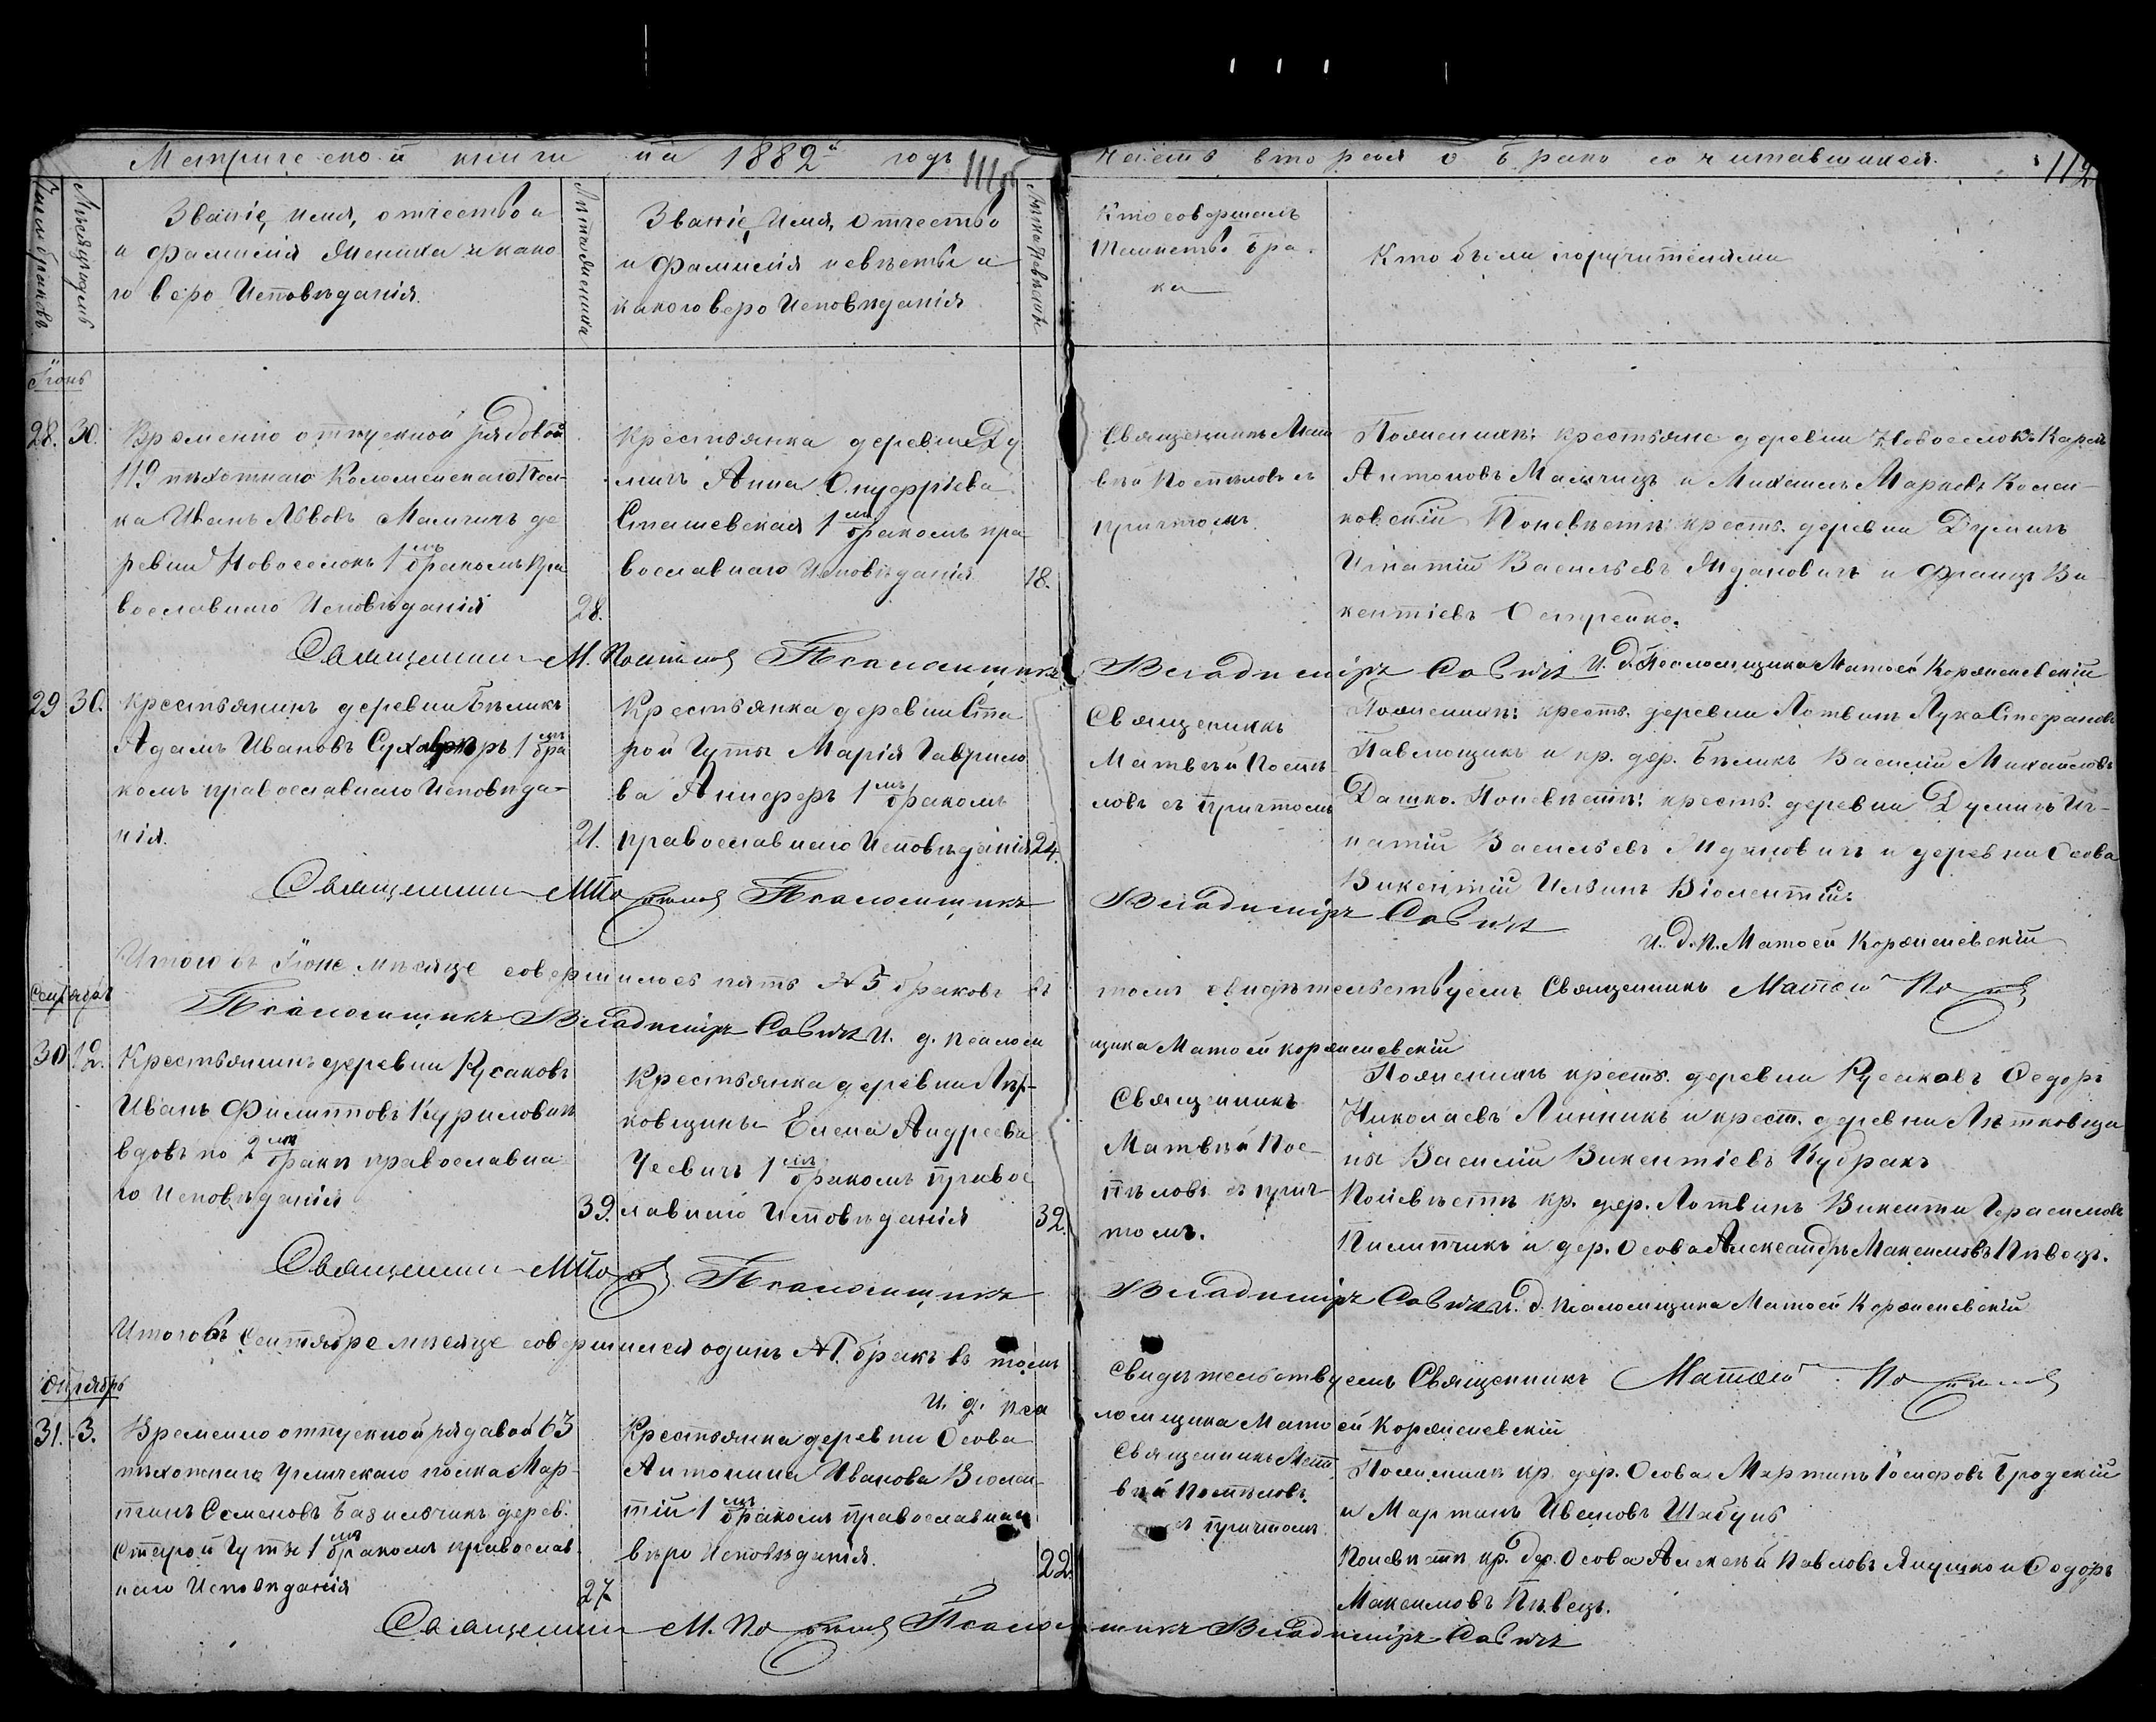 Метрической книги на 1882й годъ 111об
часть вторая о бракосочитавшихся. 112
Число браковъ
Мѣсяцъ и день
Званіе, имя, отчество и
и фамилія жениха и како
го веро Исповѣданія.
Лѣта жениха
Званіе, Имя, Отчество
и Фамилія невѣсты и
какого веро Исповѣданія
Лѣта невѣсты
Кто совершалъ
таинство бра-
ка
Кто были поручителями
Іюнь
28. 30.
Временно отпускной рядовой
119 пѣхотнаго Коломенскаго Пол-
ка Иванъ Львовъ Маличъ де
ревни Новоселокъ 1мъ бракомъ пра
вославнаго Исповѣданія
28.
Крестьянка деревни Ду
личъ Анна Онуфріева
Сташевская 1мъ бракомъ пра
вославнаго Исповѣданія
18.
Священникъ Мат
вѣй Постѣловъ съ
причтомъ.
По женихѣ: крестьяне деревни Новоселокъ Карпъ
Антоновъ Мальчицъ и Михаилъ Марковъ Колен-
ковскій По невѣстѣ: крест. деревни Думичъ
Игнатій Васильевъ Ждановичъ и Францъ Ви-
кентіевъ Остренко.
Священникъ М. Постѣловъ Псаломщикъ Владиміръ Савичъ И. д. Псаломщика Матѳей Корженевскій
29 30.
Крестьянинъ деревни Бѣликъ
Адамъ Ивановъ 1мъ бра
комъ православнаго Исповѣда-
нія.
21.
Крестьянка деревни Ста
рой Гуты Марія Гаврило
ва 1мъ бракомъ
православнаго Исповѣданія
24.
Священникъ
Матвѣй Постѣ
ловъ съ причтомъ
По женихѣ: крест. деревни Лотвинъ Лука Стефановъ
Павлющикъ и кр. дер. Бѣликъ Василій Михаиловъ
Дашко. По невѣстѣ: крест. деревни Думичъ Иг-
натій Васильевъ Ждановичъ и деревни Осова
Викентій Ильинъ Віолентій.
Священникъ М. Постѣловъ Псаломщикъ Владиміръ Савичъ
и. д. п. Матѳей Корженевскій
Итого въ Іюне мѣсяце совершилось пять №5 браковъ въ томъ свидѣтельствуемъ Священникъ Матѳей
Сентябрь
Псаломщикъ Владиміръ Савичъ И. д. псаломщика Матѳей Корженевскій
30 12.
Крестьянинъ деревни Русаковъ
Иванъ Филиповъ Куриловичъ
вдовъ по 2мъ браки православна
го Исповѣданія
39.
Крестьянка деревни
ковщины Елена Андреева
1мъ бракомъ правос
лавнаго Исповѣданія
32.
Священникъ
Матвѣй Пос-
тѣловъ съ прич-
томъ.
По женихѣ крест. деревни Русаковъ Ѳедоръ
Николаевъ Линникъ и крест. деревни Лѣтковщи
ны Василій Викентіевъ Кудракъ
По невѣстѣ кр. дер. Лотвинъ Викентій Герасимовъ
Пилипчикъ и дер. Осова Александръ Максимовъ Пѣвецъ.
Священникъ Псаломщикъ Владиміръ Савичъ и. д. псаломщика Матѳей Корженевскій
Итого въ сентябре мѣсяце совершился одинъ №1. бракъ въ томъ свидѣтельствуемъ Священникъ Матѳей
Октябрь
И. д. псаломщика Матѳей Корженевскій
31. 3.
Временно отпускной рядавой 63
пѣхотнаго Углическаго полка Мар-
тинъ Семеновъ Базильчикъ дерев.
Старой Гуты 1мъ бракомъ православ-
наго Исповѣданія
27
Крестьянка деревни Осова
Антонина Иванова Віолен-
тій 1мъ бракомъ православнаго
вѣро Исповѣданія.
22.
Священникъ Мат
вѣй Постѣловъ
съ причтомъ
По женихѣ кр. дер. Осова Мартинъ Іосифовъ Бродскій
и Мартинъ Ивановъ Шабунь
По невѣстѣ кр. дер. Осова Алексѣй Павловъ Янушко и Ѳедоръ
Максимовъ Пѣвецъ.
Священникъ М. Псаломщикъ Владиміръ Савичъ